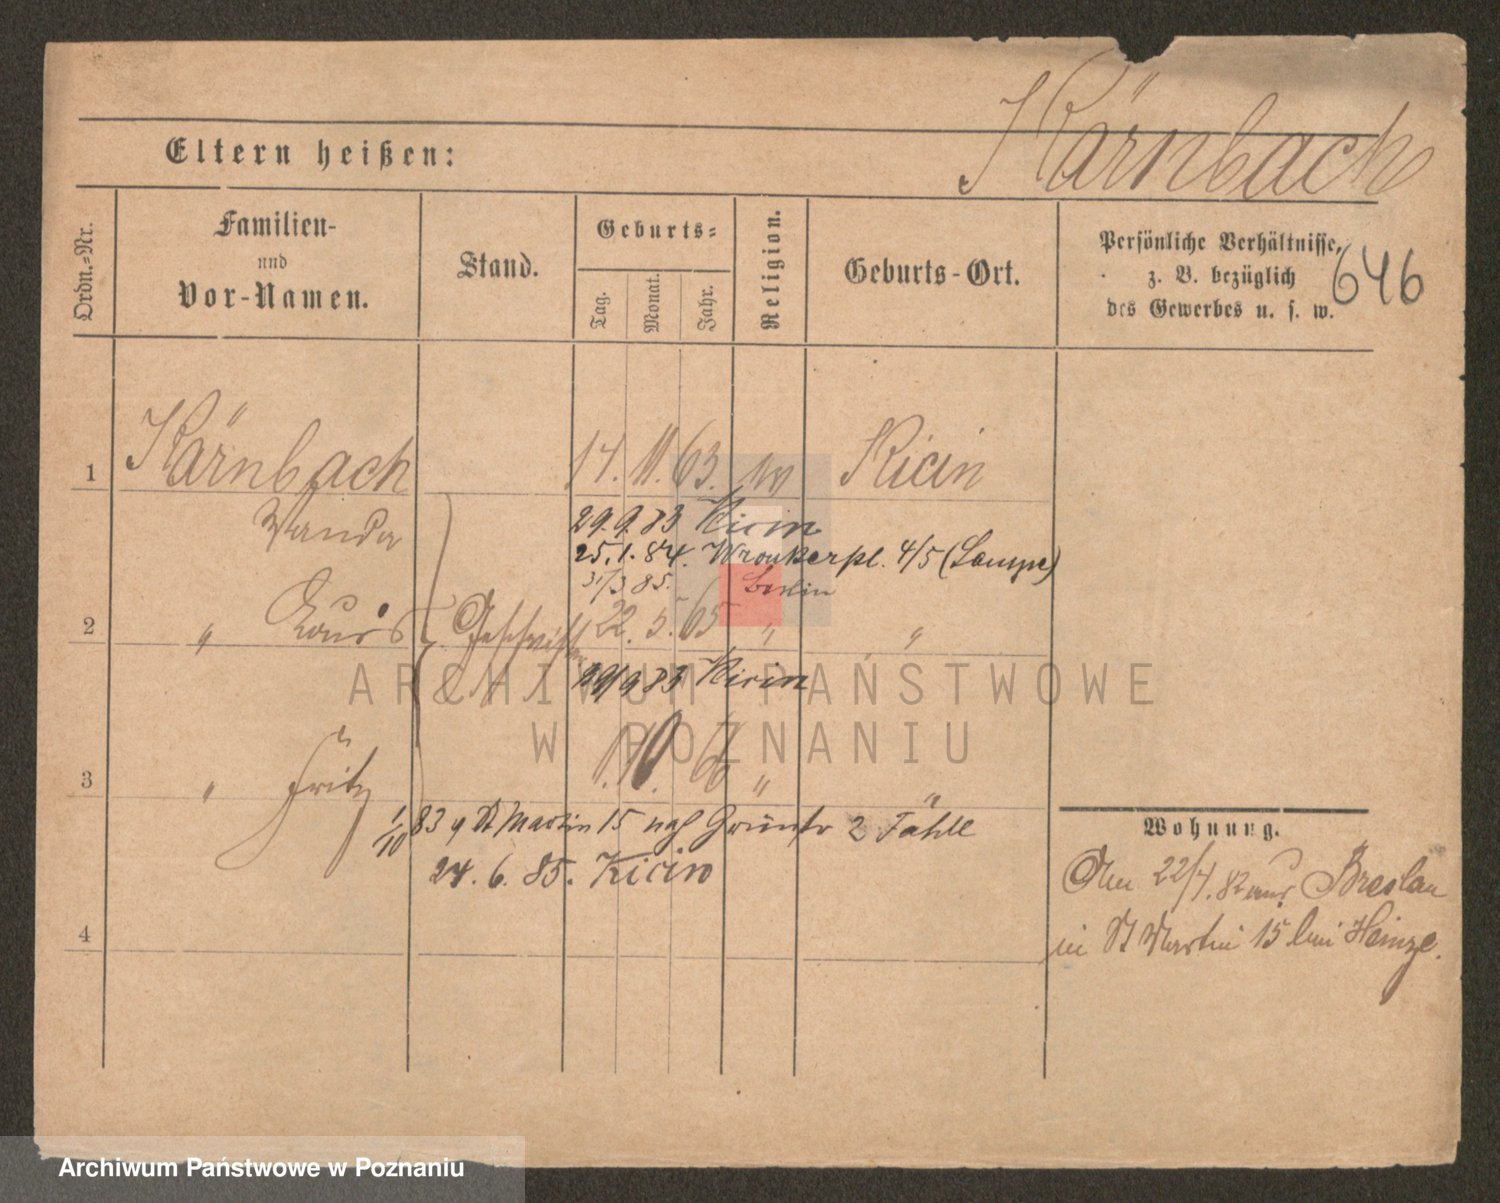 Kärnbach
Eltern heißen:
Ordn.=Nr.
Familien-
und
Vor-Namen.
Stand.
Geburts=
Tag.
Monat.
Jahr.
Religion.
Geburts-Ort.
Persönliche Verhältnisse,
z. B. bezüglich
des Gewerbes u. s. w.
646
1 Kärnbach 17. 11. 63. Kicin
Wanda
29. 9. 83 Kicin
25. 1. 84. Wronkerpl. 4/5 (Lampe)
31/3 85. Berlin
2 " Louis Geschwister 22. 5. 65 " "
29/9 83 Kicin
3 " Fritz 1. 10. 66 " "
1/10 83 St Martin 15 nach 2
24. 6. 85. Kicin
4
Wohnung.
Am 22/4. 82 aus Breslau
in St Martin 15 bei Heinze.
ARCHIWUM PAŃSTWOWE
W POZNANIU
Archiwum Państwowe w Poznaniu